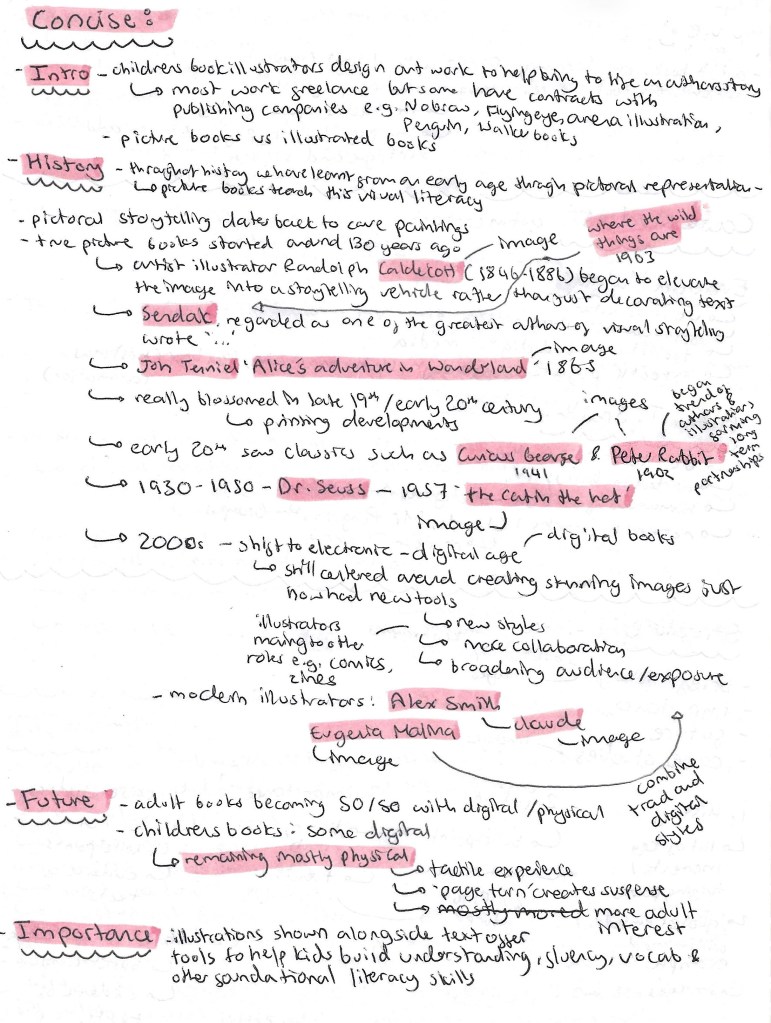 Concise:
- Intro - childrens book illustrators design art work to help bring to life an authors story
↳ most work freelance but some have contracts with
publishing companies e.g. Nobrow, Flying eye, arena illustration,
Penguin, Walker books
- picture books vs illustrated books
- History - throughout history we have learnt from an early age through pictoral representation -
↳ picture books teach this visual literacy
- pictoral storytelling dates back to cave paintings
- true picture books started around 130 years ago
image
where the wild
things are
1963
↳ artist illustrator Randolph Caldecott (1846-1886) began to elevate
the image into a storytelling vehicle rather than just decorating text
↳ Sendak, regarded as one of the greatest authors of visual storytelling
wrote '...'
↳ Jon Tenniel 'Alice's adventure in Wonderland' 1865
image
↳ really blossomed in late 19th/early 20th century
↳ printing developments
images
began
trend of
authors &
illustrators
forming
long
term
partnerships
↳ early 20th saw classics such as Curious George & Peter Rabbit
1941
1902
↳ 1930-1950 - Dr. Seuss - 1957 'the cat in the hat'
image
↳ 2000s - shift to electronic - digital age
digital books
↳ still centered around creating stunning images just
now had new tools
↳ new styles
↳ more collaboration
↳ broadening audience/exposure
illustrators
moving to other
roles e.g. comics,
zines
- modern illustrators: Alex Smith
claude
image
Eugenia Malina
image
combine
trad and
digital
styles
- Future - adult books becoming 50/50 with digital/physical
- childrens books: some digital
↳ remaining mostly physical
↳ tactile experience
↳ 'page turn' creates suspense
↳ mostly moved more adult
interest
- Importance - illustrations shown alongside text offer
tools to help kids build understanding, fluency, vocab &
other foundational literacy skills